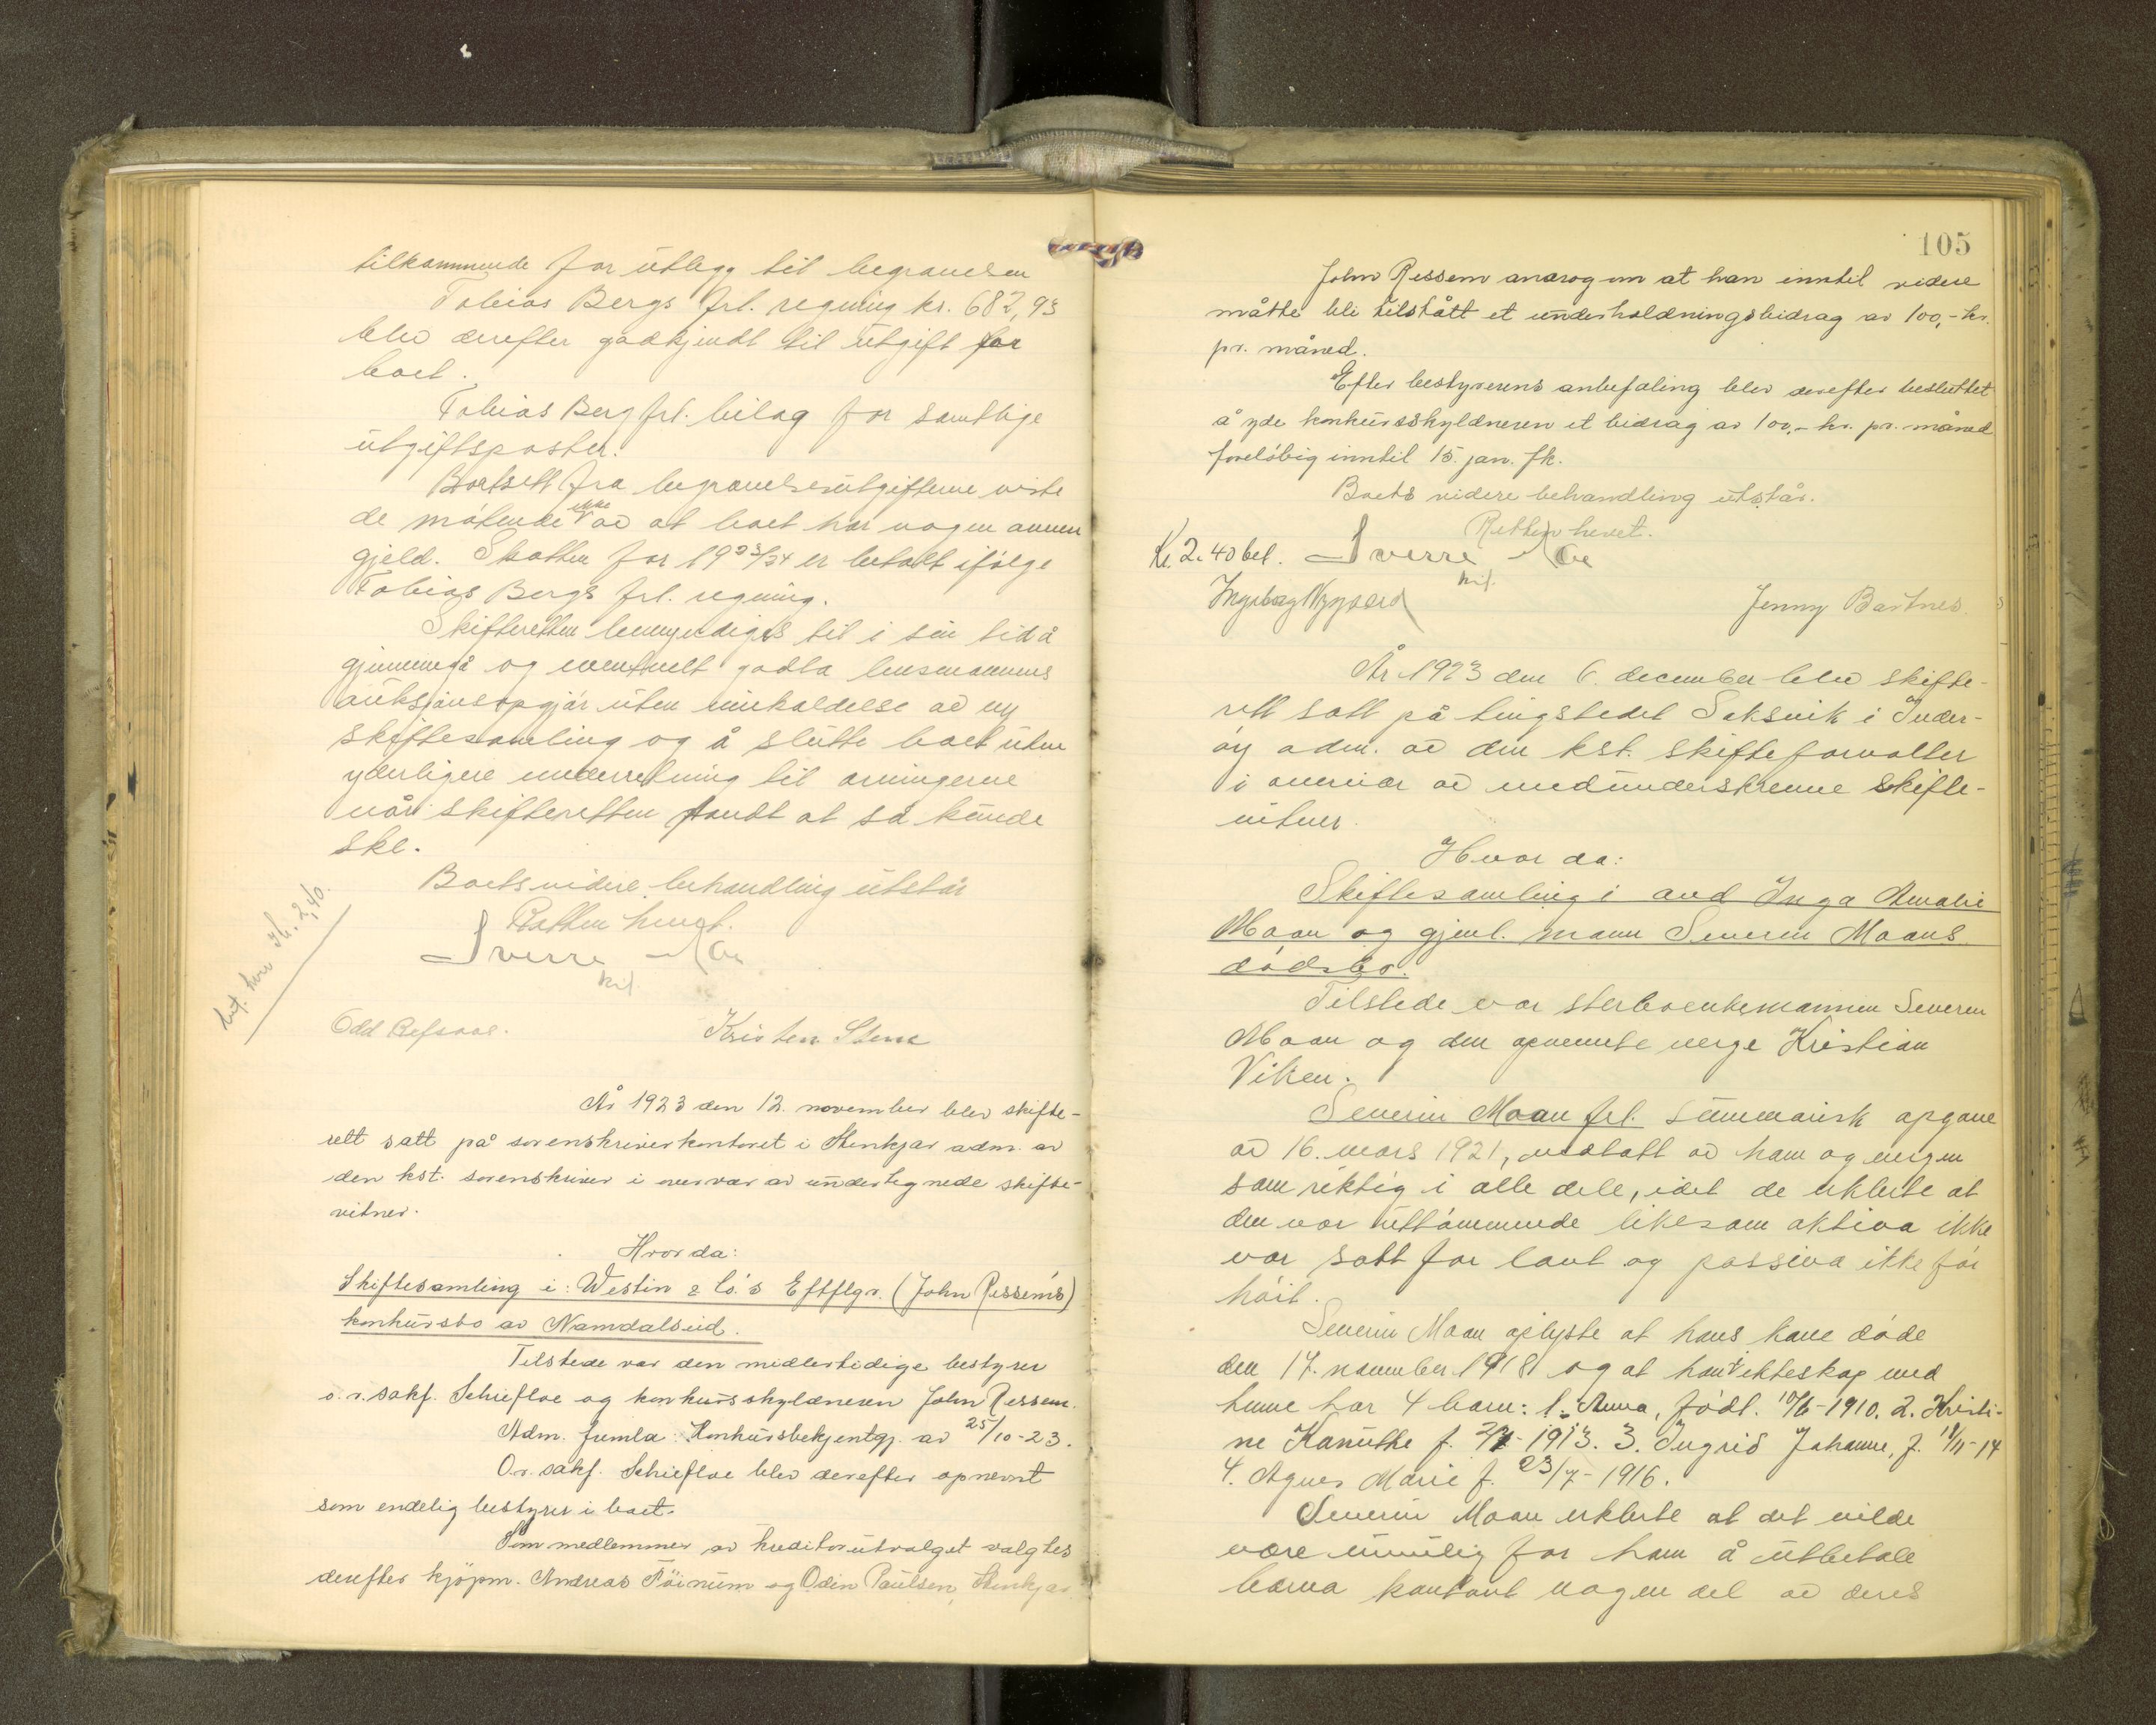 tilkommende for utlegg til begravelsen
Tobias Bergs frl. regning kr. 682,93
blev derefter godkjendt til utgift for
boet.
Tobias Berg frl. bilag for samtlige
utgiftsposter.
Bortsett fra begravelsesutgiftene viste
de møtende ikke av at boet har nogen annen
gjeld. Skatten for 1923/24 er betalt ifølge
Tobias Bergs frl. regning.
Skifteretten bemyndiges til i sin tid å
gjennemgå og eventuelt godta lensmannens
auksjonsopgjør uten innkaldelse av ny
skiftesamling og å slutte boet uten
yderligere underretning til arvingerne
når skifteretten fandt at så kunde
ske.
Boets videre behandling utstår
Retten hevet.
Sverre Moe
kst
bet. herr Kr. 2,40.
Odd Refsaas. Kristen Stene
År 1923 den 12. november blev skifte-
rett satt på sorenskriverkontoret i Stenkjær adm. av
den kst. sorenskriver i overvær av undertegnede skifte-
vitner.
Hvor da:
Skiftesamling i: Westin & Co.'s Eftflgr. (John Ressem's)
konkursbo av Namdalseid.
Tilstede var den midlertidige bestyrer
o.r.sakf. Schiefloe og konkursskyldneren John Ressem.
Adm. fremla: Konkursbekjentgj. av 25/10-23.
O.r.sakf. Schiefloe blev derefter opnevnt
som endelig bestyrer i boet.
Som medlemmer av kreditorutvalget valgtes
derefter kjöpm. Andreas Föinum og Odin Paulsen, Stenkjær.
105
John Ressem androg om at han inntil videre
måtte bli tilstått et underholdningsbidrag av 100,- kr.
pr. måned.
Efter bestyrerens anbefaling blev derefter besluttet
å yde konkursskyldneren et bidrag av 100,- kr. pr. måned
foreløbig inntil 15. jan. fk.
Boets videre behandling utstår.
Retten hevet.
Kr. 2.40 bet. Sverre Moe
kst.
Ingeborg Nygaard Jenny Bartnes.
År 1923 den 6. december blev skifte-
rett satt på tingstedet Saksvik i Inder-
øy adm. av den kst. skifteforvalter
i overvær av medunderskrevne skifte-
vitner.
Hvor da:
Skiftesamling i avd Inga Amalie
Moan og gjenl. mann Severin Moans
dødsbo.
Tilstede var sterboenkemannen Severin
Moan og den opnevnte verge Kristian
Viken.
Severin Moan frl. summarisk opgave
av 16. mars 1921, vedtatt av ham og vergen
som riktig i alle dele, idet de erklerte at
den var uttømmende likesom aktiva ikke
var satt for lavt og passiva ikke for
høit.
Severin Moan oplyste at hans kone døde
den 17. november 1918 og at han i ekteskap med
henne har 4 barn: 1. Anna, født. 10/6-1910. 2. Kristi-
ne Kanutte f. 1913. 3. Ingrid Johanne, f. 18/11-14
4. Agnes Marie f. 23/7-1916.
Severin Moan erklerte at det vilde
være umulig for ham å utbetale
barna kontant nogen del av deres